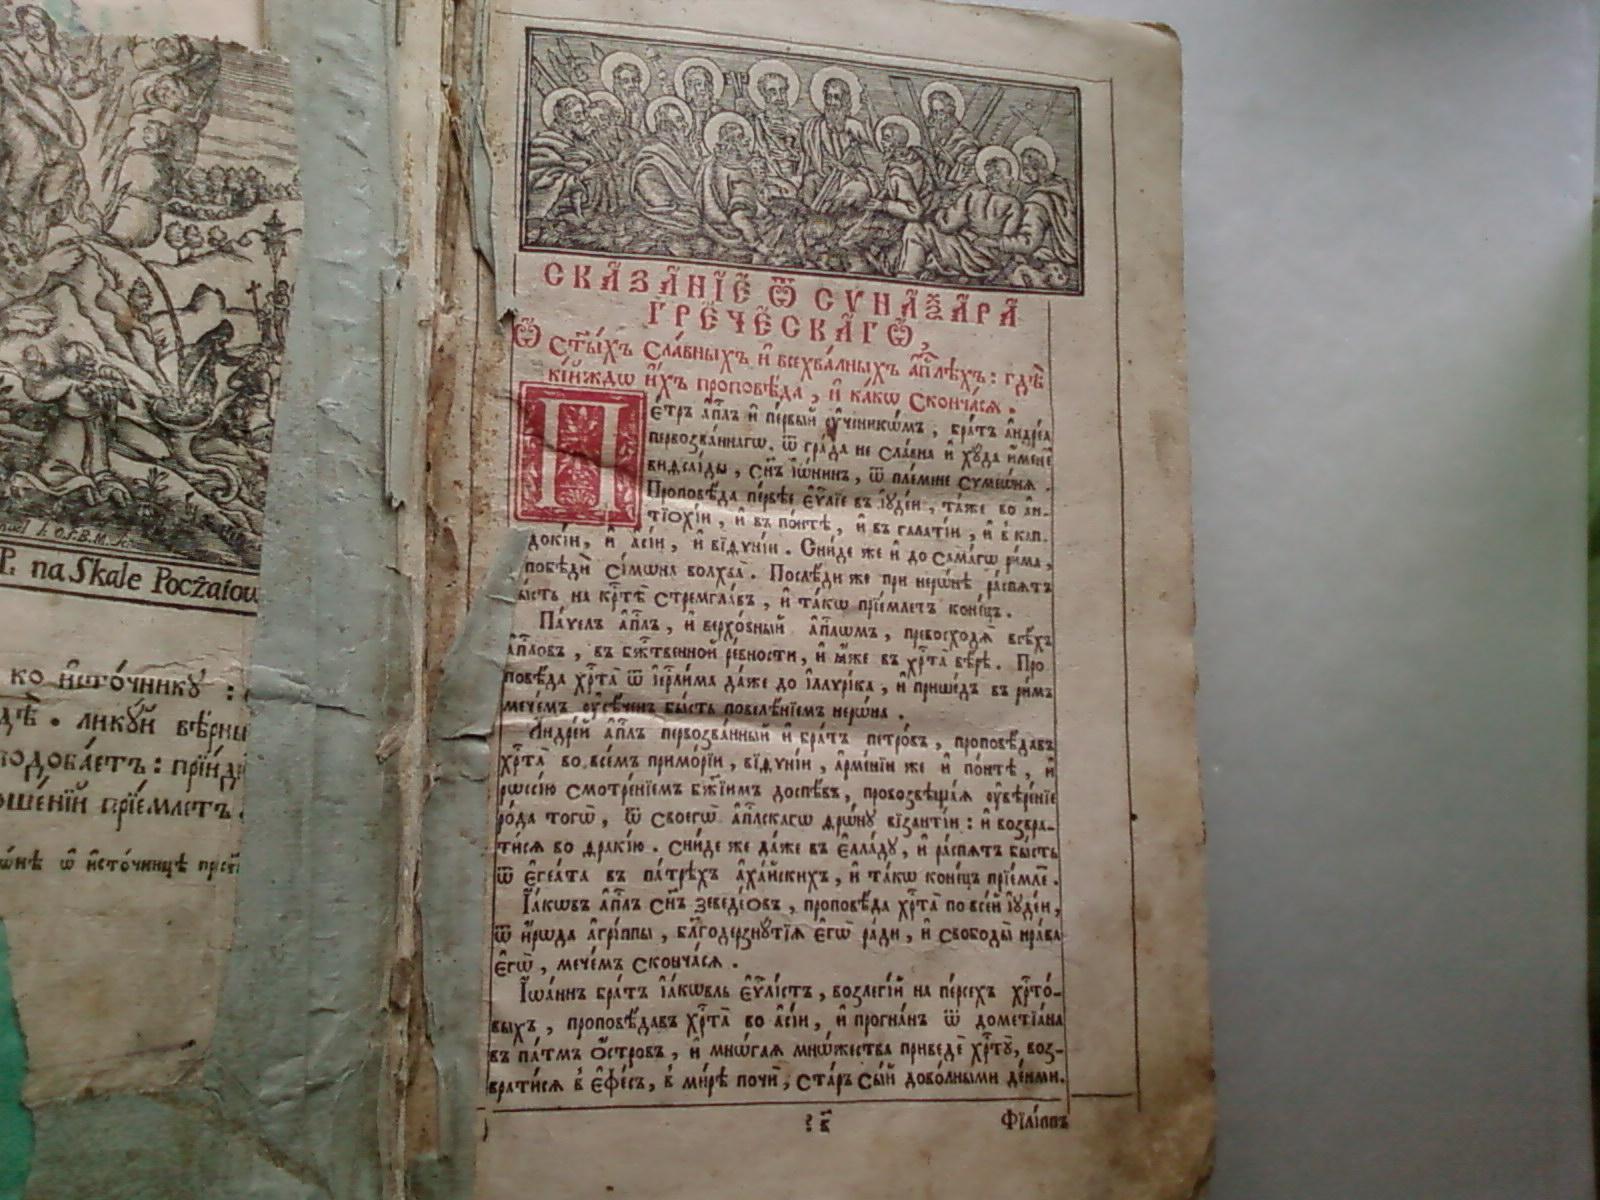 P. na Skale Poczaiow
ко и҆сто́чникꙋ :
дѣ . ликꙋ́й вѣ́рны
подоба́етъ : прїиди
ше́нїй прїе́млетъ .
ѡ҆ и҆сто́чницѣ
СКАЗАНЇЕ Ѿ СѴНАѮАРА
ГРЕЧЕСКАГѠ,
Ѽ ст҃ы́хъ сла́вныхъ и҆ всехва́лныхъ а҆п҃лѣхъ : гдѣ̀
кі́йждѡ и҆́хъ проповѣ́да , и҆ ка́кѡ сконча́сѧ .
Пе́тръ а҆п҃лъ и҆ пе́рвый ᲂу҆ченикѡ́мъ , бра́тъ а҆ндре́а
первозва́ннагѡ . ѿ гра́да не сла́вна и҆ хꙋ́да и҆́менемъ
виѳсаі́ды , сн҃ъ і҆ѡ́нинъ , ѿ пле́мене сѵмеѡ́нѧ .
Проповѣ́да пе́рвѣе є҆ѵⷢ҇лїе въ і҆ꙋде́и , та́же во а҆н-
тїохі́и , и҆ въ по́нтѣ , и҆ въ гала́тїи , и҆ в̾ кап-
докі́и , и҆ а҆сі́и , и҆ виѳѵні́и . Сни́де же и҆ до самагѡ ри́ма ,
побѣди̑ сі́мѡна волхва̀ . Послѣди́ же при нерѡ́нѣ ра́спѧтъ
ысть на крⷭ҇тѣ̀ стремгла́въ , и҆ та́кѡ прїе́млетъ коне́цъ .
Па́велъ а҆п҃лъ , и҆ верхо́вный а҆п҃лѡмъ , превосходѧ̀ всѣ́хъ
а҆п҃ловъ , въ бж҃твенной ре́вности , и҆ ꙗ҆́же въ хрⷭ҇та̀ вѣ́рѣ . Про
повѣ́да хрⷭ҇та̀ ѿ і҆ерⷭ҇ли́ма да́же до і҆ллѵрі́ка , и҆ прише́дъ въ ри́мъ
мече́мъ ᲂу҆сѣ́ченъ бы́сть повелѣ́нїемъ неро́на .
А҆ндре́й а҆п҃лъ первозва́нный и҆ бра́тъ петро́въ , проповѣ́давъ
хрⷭ҇та̀ во все́мъ примо́рїи , виѳѵні́и , а҆рме́нїи же и҆ по́нтѣ , и҆
рѡссі́ю смотре́нїемъ бж҃їимъ доспѣ́въ , провозвѣща́ѧ ᲂу҆вѣре́нїе
ро́да тогѡ̀ , ѿ своегѡ̀ а҆п҃лскагѡ ѳро́нꙋ вїзанті́и : и҆ возвра-
ти́сѧ во ѳракі́ю . Сни́де же да́же въ є҆лла́дꙋ , и҆ ра́спѧтъ бы́сть
ѿ є҆геа́та въ па́трѣхъ а҆ха́йскихъ , и҆ та́кѡ коне́цъ прїе́мле .
І҆а́кѡвъ а҆п҃лъ сн҃ъ зеведе́овъ , проповѣ́да хрⷭ҇та̀ по все́й і҆ꙋде́и ,
ѿ и҆́рѡда а҆грі́ппы , бл҃годерзнꙋ́тїѧ є҆гѡ̀ ра́ди , и҆ свободы̀ нра́ва
є҆гѡ̀ , мече́мъ сконча́сѧ .
І҆ѡа́ннъ бра́тъ і҆а́кѡвль є҆ѵⷢ҇лі́стъ , возлегі́й на пе́рсехъ хрⷭ҇то́-
выхъ , проповѣ́давъ хрⷭ҇та̀ во а҆сі́и , и҆ прогна́нъ ѿ дометїа́на
въ па́тмъ ѻ҆́стровъ , и҆ мнѡ́гаѧ мнѡ́жества приведѐ хрⷭ҇тꙋ̀ , воз-
врати́сѧ в̾ є҆фе́съ , в̾ ми́рѣ почѝ , ста́ръ сы́й дово́лными де́нми .
Фїлі́ппъ